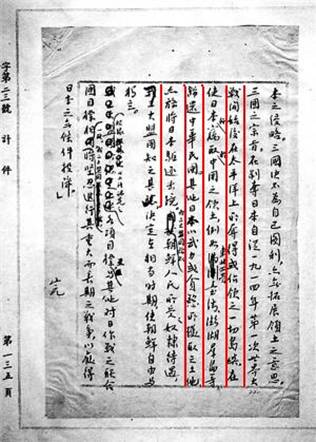 本之侵略。三國決不為自己圖利,亦無拓展領土之意思。
三國之宗旨,在剝奪日本自從一九一四年第一次世界大
戰開始後在太平洋上所奪得或佔領之一切島嶼,在
使日本竊取中國之領土,例如台灣、澎湖羣島等,
歸還中華民國,其他日本以武力或貪慾所攫取之土地,
亦務將日本驅逐出境。朝鮮人民所受奴隸待遇,
三大盟國知之甚 決定在相當時期使朝鮮自由與
獨立。
各項目標 與其他對日作戰之聯合
國目標 堅忍進行其重大而長期之戰爭,以獲得
日本之無條件投降」
完
字第二三號 計 件 第一三五頁